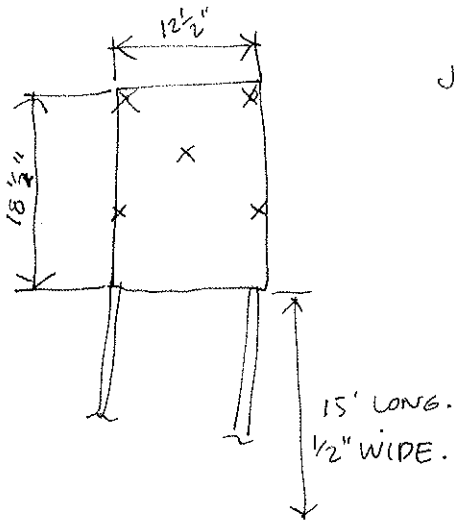 12 1/2"
J
18 1/2"
15' LONG.
1/2" WIDE.